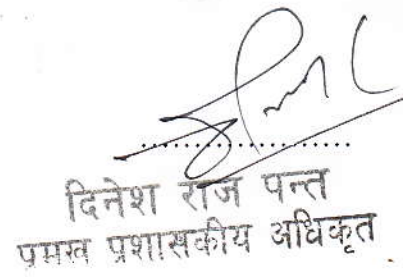 दिनेश राज पन्त
प्रमुख प्रशासकीय अधिकृत